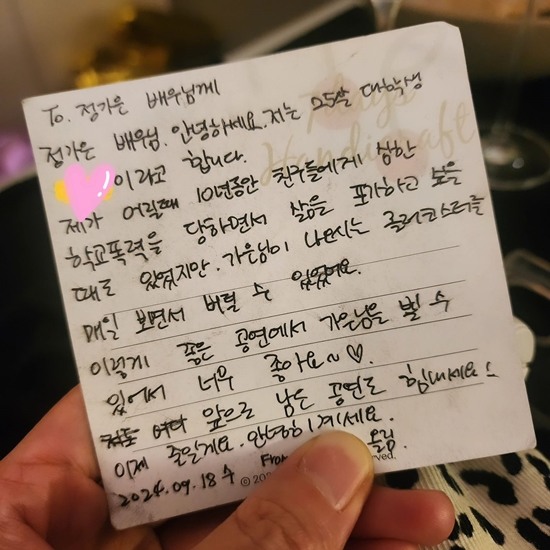 To. 정가은 배우님께
정가은 배우님. 안녕하세요. 저는 25살 대학생
이라고 합니다.
제가 어릴때 10년동안 친구들에게 심한
학교폭력을 당하면서 삶을 포기하고 싶을
때도 있었지만. 가은님이 나오시는 롤러코스터를
매일 보면서 버틸 수 있었어요.
이렇게 좋은 공연에서 가은님을 뵐 수
있어서 너무 좋아요~♡.
앞으로 남은 공연도 힘내세요
이제 줄일게요. 안녕히계세요.
2024.09.18 수 From 올림.
© 202 ved.
7days
Handicraft